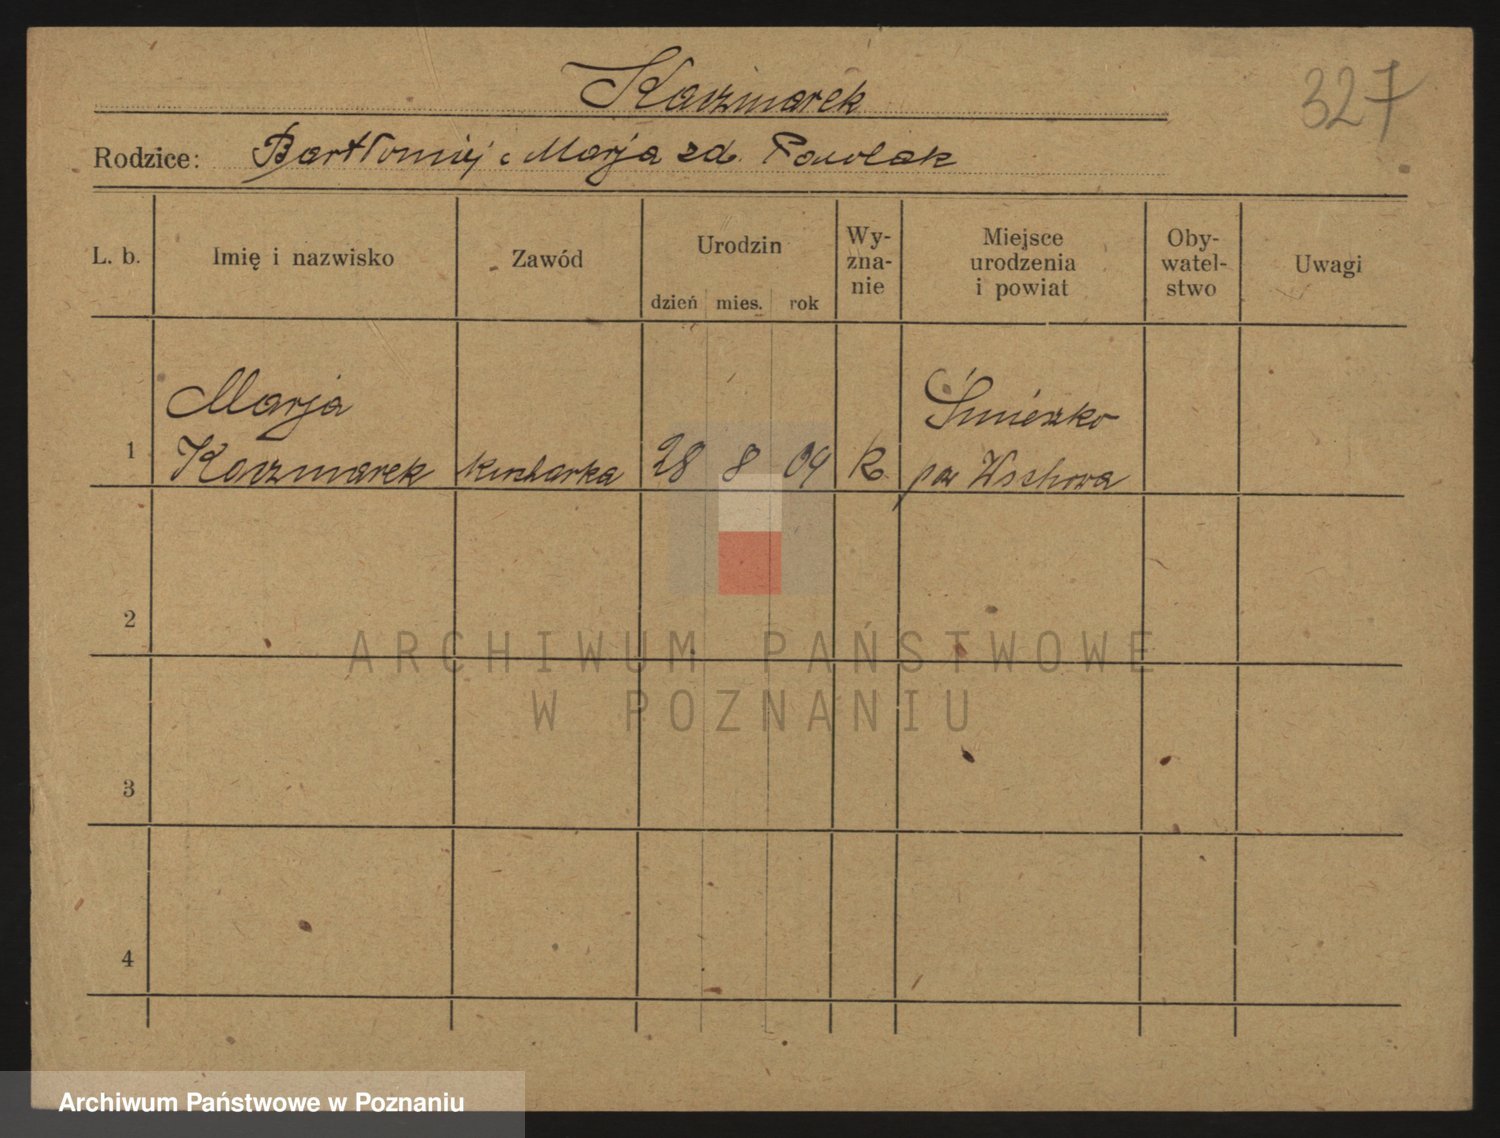 Kaczmarek
327
Rodzice: Bartłomiej i Marja zd. Pawolak
L. b.
Imię i nazwisko
Zawód
Urodzin
dzień mies. rok
Wy-
zna-
nie
Miejsce
urodzenia
i powiat
Oby-
watel-
stwo
Uwagi
Marja
Śmieszko
1 Kaczmarek kucharka 28 8 09 k. pow Wschowa
2
3
4
ARCHIWUM PAŃSTWOWE
W POZNANIU
Archiwum Państwowe w Poznaniu